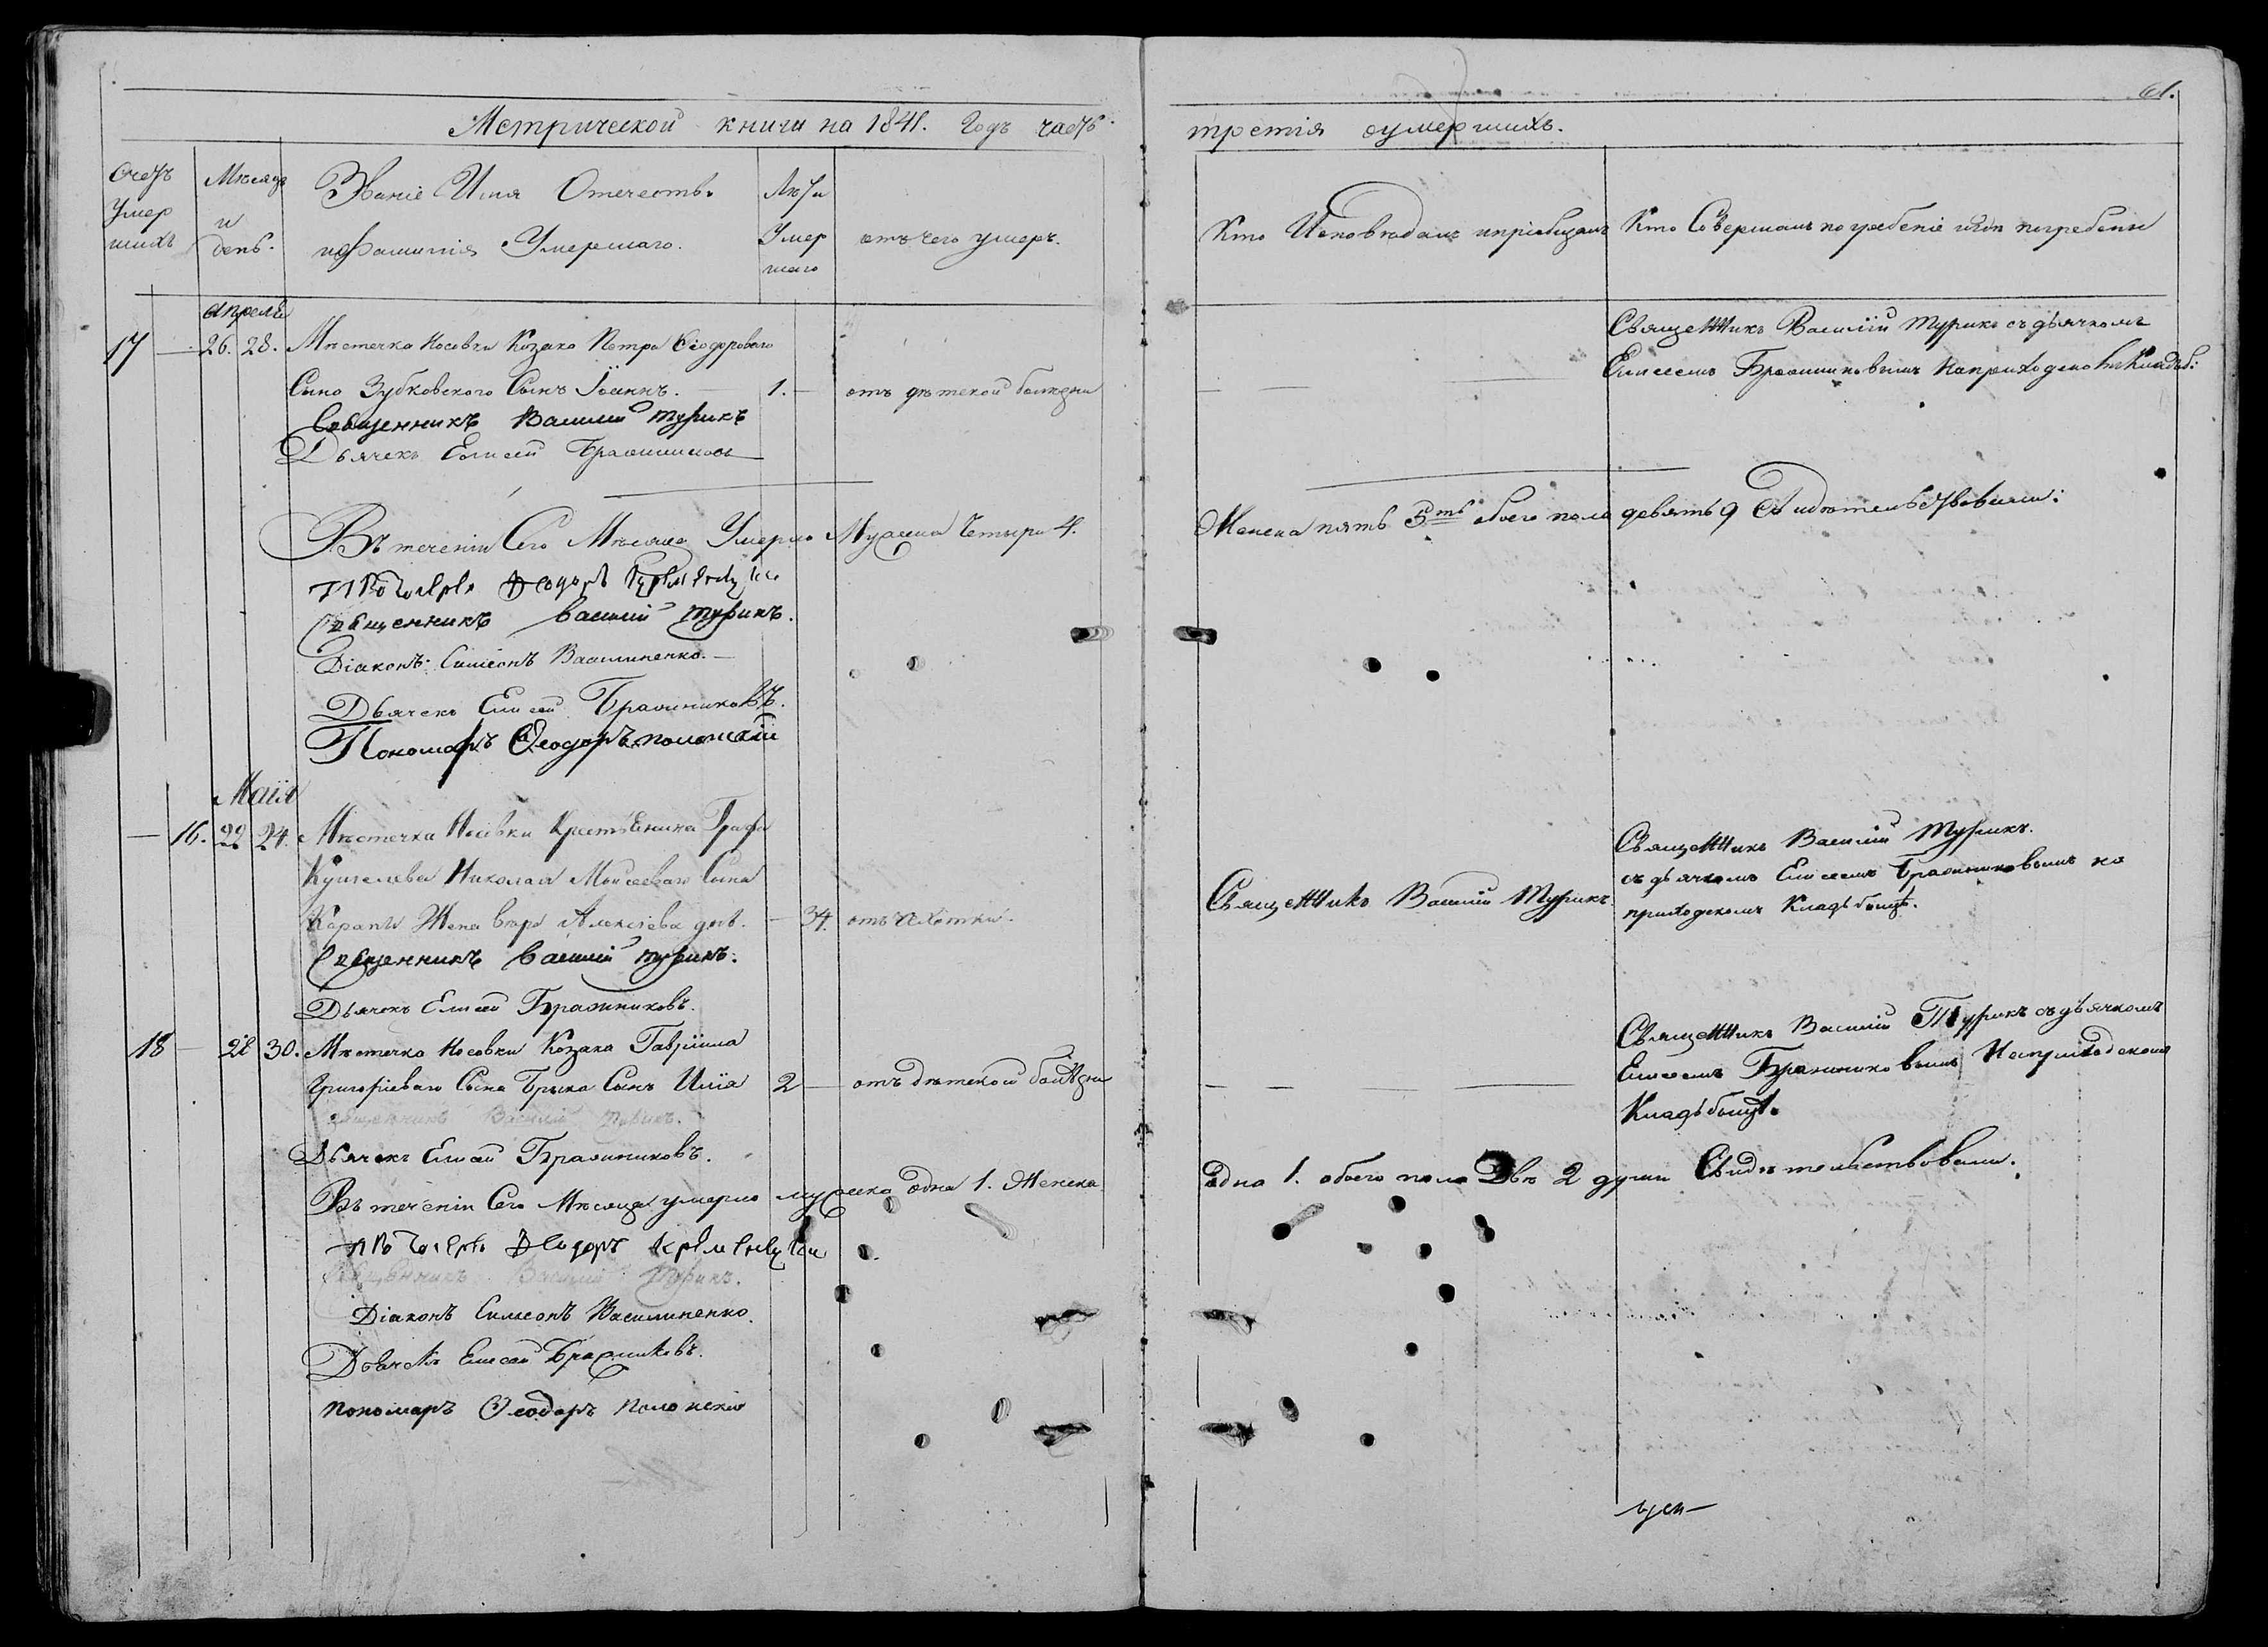 61.
Метрической книги на 1841. Годъ часть третія оумершихъ.
Счетъ умершихъ
Мѣсяцъ и день.
Званіе Имя Отечество и Фамилія Умершаго.
Лѣта Умершаго
отъ чего умеръ.
Кто Исповѣдалъ и пріобщалъ
Кто Совершалъ погребеніе и гдѣ погребены
апреля
17 — 26. 28. Мѣстечка Носовки Козака Петра Ѳеодороваго
Сына Зубковского Сынъ Іоаннъ. 1. — отъ дѣтской болѣзни
Священникъ Василій Турикъ съ дьячкомъ
Елисеемъ Бражниковымъ на приходско
Священникъ Василій Турикъ
Дьячекъ Елисей Бражниковъ
Въ теченіи Сего Мѣсяца Умерло Мужеска Четыри 4. Женска пять 5ть обоего пола девять 9 Свидѣтельствовали:
Ѳеодоръ
Священникъ Василій Турикъ.
Діаконъ Симеонъ Василиненко.
Дьячекъ Елисей Бражниковъ.
Пономаръ Ѳеодоръ Полонскій
Маія
— 16. 22 24. Мѣстечка Носовки Крестьянина Графа
Кушелева Николая Моисеева Сына
Жена Алексіева 34. отъ
Священникъ Василій Турикъ.
Священникъ Василій Турикъ.
съ дьячкомъ Елисеемъ Бражниковымъ на
приходскомъ Кладъбищѣ.
Священникъ Василій Турикъ.
Дьячекъ Елисей Бражниковъ.
18 — 28 30. Мѣстечка Носовки Козака Гавріила
Григоріеваго Сына Сынъ Илія 2 — отъ дѣтской болѣзни
Священникъ Василій Турикъ съ дьячкомъ
Елисеемъ Бражниковымъ На приходскомъ
Кладъбищѣ.
Священникъ Василій Турикъ.
Дьячекъ Елисей Бражниковъ.
Въ теченіи Сего Мѣсяца умерло мужеска одна 1. Женска одна 1. обоего пола Двѣ 2 души Свидѣтельствовали.
Ѳеодоръ
Священникъ Василій Турикъ.
Діаконъ Симеонъ Василиненко.
Дьячекъ Елисей Бражниковъ.
пономаръ Ѳеодоръ Полонскій